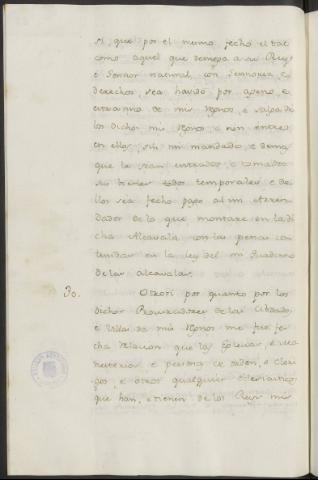 si, que por el mismo fecho el tal
como aquel que deniega a su Rey
e Señor natural, con Señorio e
derechos, sea havido por ageno, e
extraño de mis Regnos, e salga de
los dichos mis Regnos, e non entre
en ellos sin mi mandado, e demas
que le sean entrados, e tomados
sus bienes todos temporales e de
llos sea fecho pago al mi Arren
dador de lo que montare en la di
cha Alcavala, con las penas con
tenidas en la ley del mi Quaderno
de las alcavalas.
30. Otrosi por quanto por los
dichos Procuradores de las Cibdades,
e Villas de mis Regnos me fue fe
cha relacion que las Eglesias, e Mo
nesterios, e personas de orden, e Cleri
gos, e otros qualquier
que han, e tienen de los Reyes mis